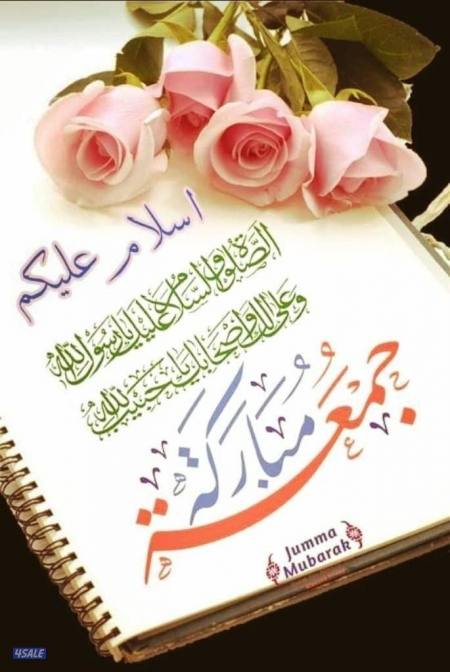 اسلام علیکم
الصَّلٰوةُ وَالسَّلَامُ عَلَيْكَ يَا رَسُولَ اللّٰه
وَعَلٰى اٰلِكَ وَاَصْحَابِكَ يَا حَبِيبَ اللّٰه
جُمُعَة
مُبَارَكَة
Jumma
Mubarak
4SALE